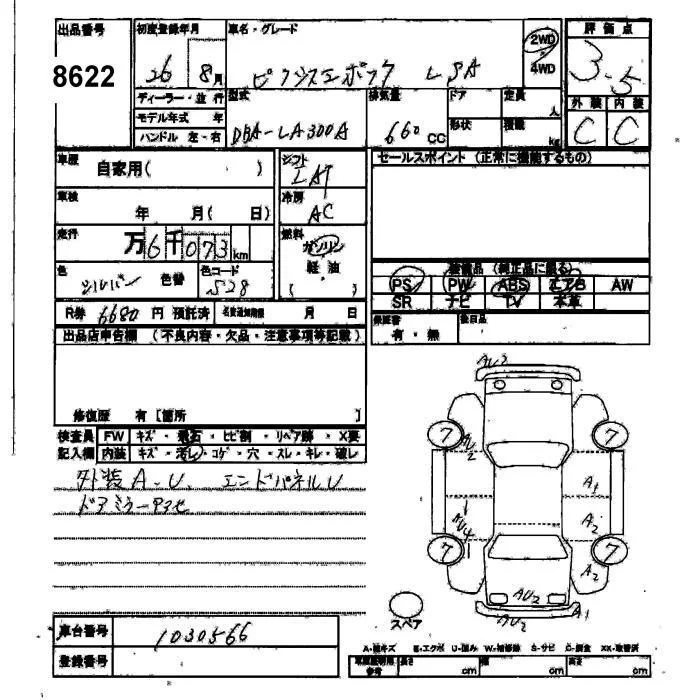 出品番号
8622
初度登録年月
26 8月
ディーラー・並行
モデル年式 年
ハンドル 左・右
車名・グレード
ピクシスエポック LSA
2WD
4WD
型式
DBA-LA300A
排気量
660 CC
ドア
形状
定員
人
積載
kg
評価点
3.5
外装 内装
C C
車歴
自家用( )
車検
年 月( 日)
走行
万6千073km
色
シルバー 色替
色コード
S28
シフト
LAT
冷房
AC
燃料
ガソリン
軽油
( )
R券 6680 円 預託済
名変通知期限 月 日
セールスポイント (正常に機能するもの)
装備品 (純正品に限る)
PS PW ABS エアB AW
SR ナビ TV 本革
保証書
有・無
後日品
出品店申告欄 (不良内容・欠品・注意事項等記載)
修復歴 有 [箇所 ]
検査員 FW キズ・飛石・ヒビ割・リペア跡・X要
記入欄 内装 キズ・汚レ・コゲ・穴・スレ・キレ・破レ
外装A.U. エンドパネルU
ドアミラーアセ
AU3
7
AU2
7
A1
AU4
A2
7
7
A2
AU2
AU2
A1
スペア
車台番号
1030566
登録番号
A-線キズ E-エクボ U-凹み W-補修跡 S-サビ C-腐食 XX-取替済
車庫証明用
参考
長さ cm 幅 cm 高さ cm